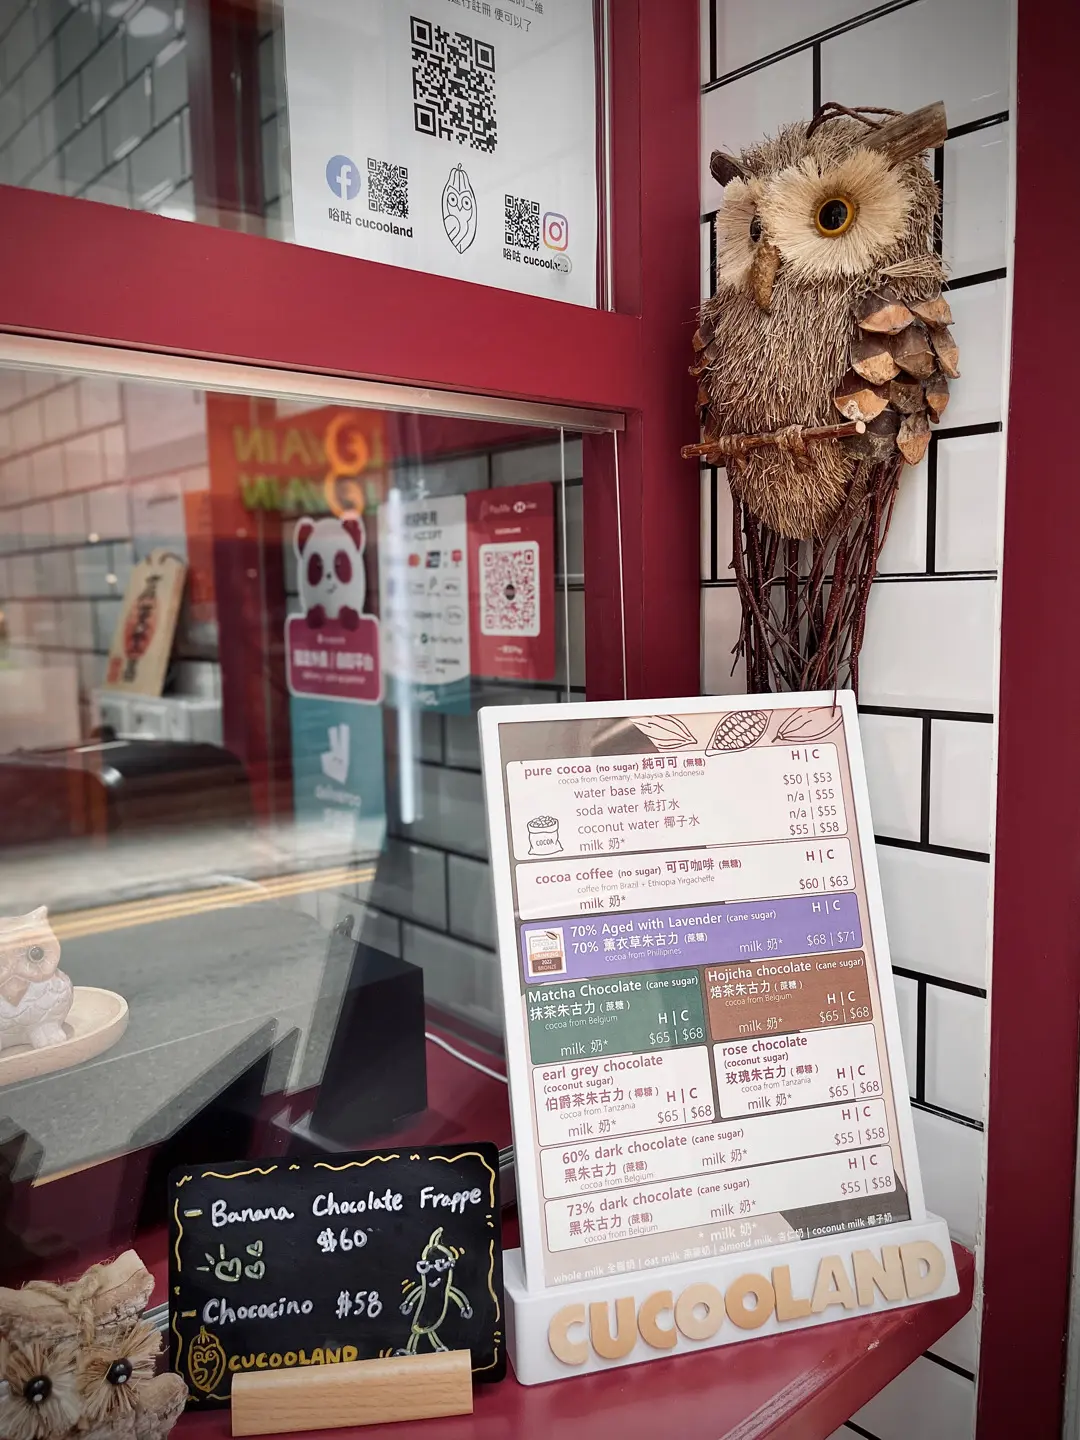 行註冊 便可以了
啗咕 cucooland
啗咕 cucooland
COOLAND
pure cocoa (no sugar) 純可可 (無糖)
H | C
cocoa from Germany, Malaysia & Indonesia
water base 純水
$50 | $53
soda water 梳打水
n/a | $55
coconut water 椰子水
n/a | $55
milk 奶*
$55 | $58
COCOA
cocoa coffee (no sugar) 可可咖啡 (無糖)
H | C
coffee from Brazil + Ethiopia Yirgacheffe
milk 奶*
$60 | $63
70% Aged with Lavender (cane sugar)
H | C
70% 薰衣草朱古力 (蔗糖)
milk 奶*
$68 | $71
cocoa from Phillipines
2022
BRONZE
Matcha Chocolate (cane sugar)
抹茶朱古力 ( 蔗糖 )
cocoa from Belgium
H | C
milk 奶*
$65 | $68
Hojicha chocolate (cane sugar)
焙茶朱古力 ( 蔗糖 )
cocoa from Belgium
H | C
milk 奶*
$65 | $68
earl grey chocolate
(coconut sugar)
伯爵茶朱古力 ( 椰糖 )
H | C
cocoa from Tanzania
$65 | $68
milk 奶*
rose chocolate
(coconut sugar)
玫瑰朱古力 ( 椰糖 )
H | C
cocoa from Tanzania
$65 | $68
milk 奶*
60% dark chocolate (cane sugar)
H | C
黑朱古力 (蔗糖)
milk 奶*
$55 | $58
cocoa from Belgium
73% dark chocolate (cane sugar)
H | C
黑朱古力 (蔗糖)
milk 奶*
$55 | $58
cocoa from Belgium
* milk 奶*
whole milk 全脂奶 | oat milk 燕麥奶 | almond milk 杏仁奶 | coconut milk 椰子奶
CUCOOLAND
- Banana Chocolate Frappe
$60
- Chococino $58
CUCOOLAND